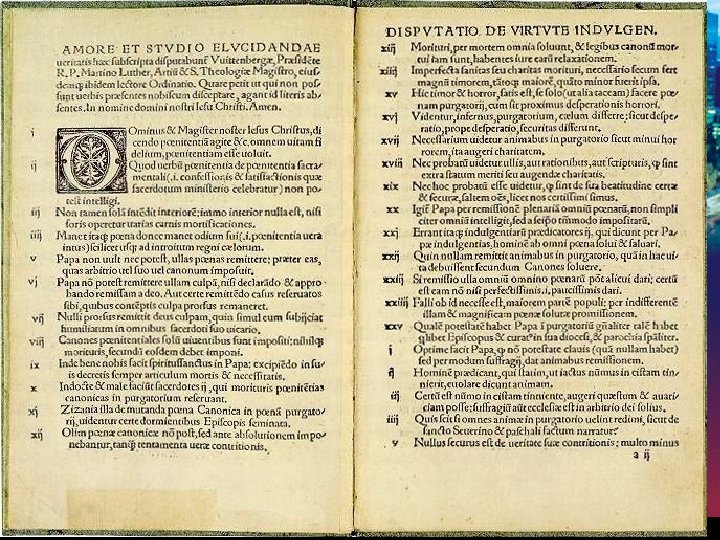 AMORE ET STVDIO ELVCIDANDAE
ueritatis hæc subscripta disputabunť Vuittenbergæ, Præsidēte
R. P. Martino Luther, Artiū & S. Theologiæ Magistro, eius-
demq; ibidem lectore Ordinatio. Quare petit ut qui non pos-
sunt uerbis præsentes nobiscum disceptare, agant id literis ab-
sentes. In nomine domini nostri Iesu Christi. Amen.
i Ominus & Magister noster Iesus Christus, di
cendo pœnitentiā agite &c. omnem uitam fi
delium, pœnitentiam esse uoluit.
ij Quod uerbū pœnitentia de pœnitentia sacra-
mentali (.i. confessionis & satisfactionis quæ
sacerdotum ministerio celebratur) non po-
test intelligi.
iij Non tamen solā intēdit interiorē; immo interior nulla est, nisi
foris operetur uarias carnis mortificationes.
iiij Manet itaq; pœna donec manet odium sui (.i. pœnitentia uera
intus) scilicet usq; ad introitum regni cælorum.
v Papa non uult nec potest, ullas pœnas remittere; præter eas,
quas arbitrio uel suo uel canonum imposuit.
vj Papa nō potest remittere ullam culpā, nisi declarādo & appro-
bando remissam a deo. Aut certe remittēdo casus reseruatos
sibi, quibus contēptis culpa prorsus remaneret.
vij Nulli prorsus remittit deus culpam, quin simul eum subijciat
humiliatum in omnibus sacerdoti suo uicario.
viij Canones pœnitentiales solū uiuentibus sunt impositi; nihilq;
morituris, secundū eosdem debet imponi.
ix Inde bene nobis facit spiritussanctus in Papa; excipiēdo in su-
is decretis semper articulum mortis & necessitatis.
x Indocte & male faciūt sacerdotes ij, qui morituris pœnitētias
canonicas in purgatorium reseruant.
xj Zizania illa de mutanda pœna Canonica in pœnā purgato-
rij, uidentur certe dormientibus Episcopis seminata.
xij Olim pœnæ canonicæ nō post, sed ante absolutionem impo-
nebantur, tanq̄ tentamenta ueræ contritionis.
DISPVTATIO DE VIRTVTE INDVLGEN.
xiij Morituri, per mortem omnia soluunt, & legibus canonū mor-
tui iam sunt, habentes iure earū relaxationem.
xiiij Imperfecta sanitas seu charitas morituri, necessario secum fert
magnū timorem, tātoq; maiorē, quāto minor fuerit ipsa.
xv Hic timor & horror, satis est, se solo (ut alia taceam) facere pœ-
nam purgatorij, cum sit proximus desperationis horrori.
xvj Videntur, infernus, purgatorium, cælum differre; sicut despe-
ratio, prope desperatio, securitas differunt.
xvij Necessarium uidetur animabus in purgatorio sicut minui hor
rorem, ita augeri charitatem.
xviij Nec probatū uidetur ullis, aut rationibus, aut scripturis, q̄ sint
extra statum meriti seu augendæ charitatis.
xix Nec hoc probatū esse uidetur, q̄ sint de sua beatitudine certæ
& securæ, saltem oēs, licet nos certissimi simus.
xx Igiť Papa per remissionē plenariā omniū pœnarū, non simpli
citer omniū intelligit, sed a seipso tm̄modo impositarū.
xxj Errant itaq; indulgentiarū prædicatores ij, qui dicunt per Pa-
pæ indulgentias, hominē ab omni pœna solui & saluari.
xxij Quin nullam remittit animabus in purgatorio, quā in hac ui-
ta debuissent secundum Canones soluere.
xxiij Si remissio ulla omniū omnino pœnarū pōt alicui dari; certū
est eam nō nisi perfectissimis .i. paucissimis dari.
xxiiij Falli ob id necesse est, maiorem partē populi; per indifferentē
illam & magnificam pœnæ solutæ promissionem.
xxv Qualē potestatē habet Papa ī purgatoriū gn̄aliter talē habet
q̄libet Episcopus & curat9 in sua diocesi, & parochia sp̄āliter.
i Optime facit Papa, q̄ nō potestate clauis (quā nullam habet)
sed per modum suffragij, dat animabus remissionem.
ij Hominē prædicant, qui statim, ut iactus nūmus in cistam tin-
nierit, euolare dicunt animam.
iij Certū est nūmo in cistam tinniente, augeri quæstum & auari-
ciam posse; suffragiū aūt ecclesiæ est in arbitrio dei solius.
iiij Quis scit si omnes animæ in purgatorio uelint redimi, sicut de
sancto Seuerino & paschali factum narratur?
v Nullus securus est de ueritate suæ contritionis; multo minus
a ij